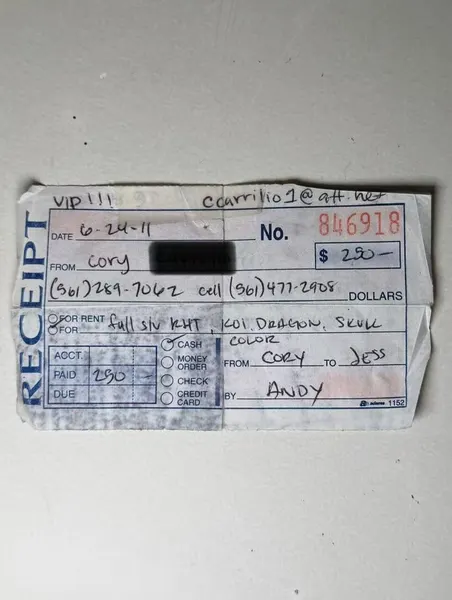 VIP!!! ccarrilio1@att.net
RECEIPT
DATE 6-24-11 No. 846918
FROM Cory $ 250-
(561)289-7062 cell (561)477-2908 DOLLARS
FOR RENT
FOR full slv RHT, KOI, DRAGON, SKULL
COLOR
ACCT. CASH
PAID 250 - MONEY ORDER FROM CORY TO JESS
DUE CHECK
CREDIT CARD BY ANDY
adams 1152